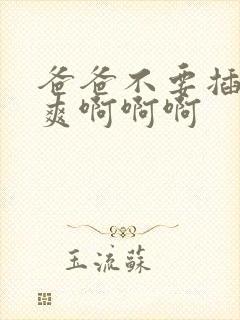 爸爸不要插
爽啊啊啊
玉流苏